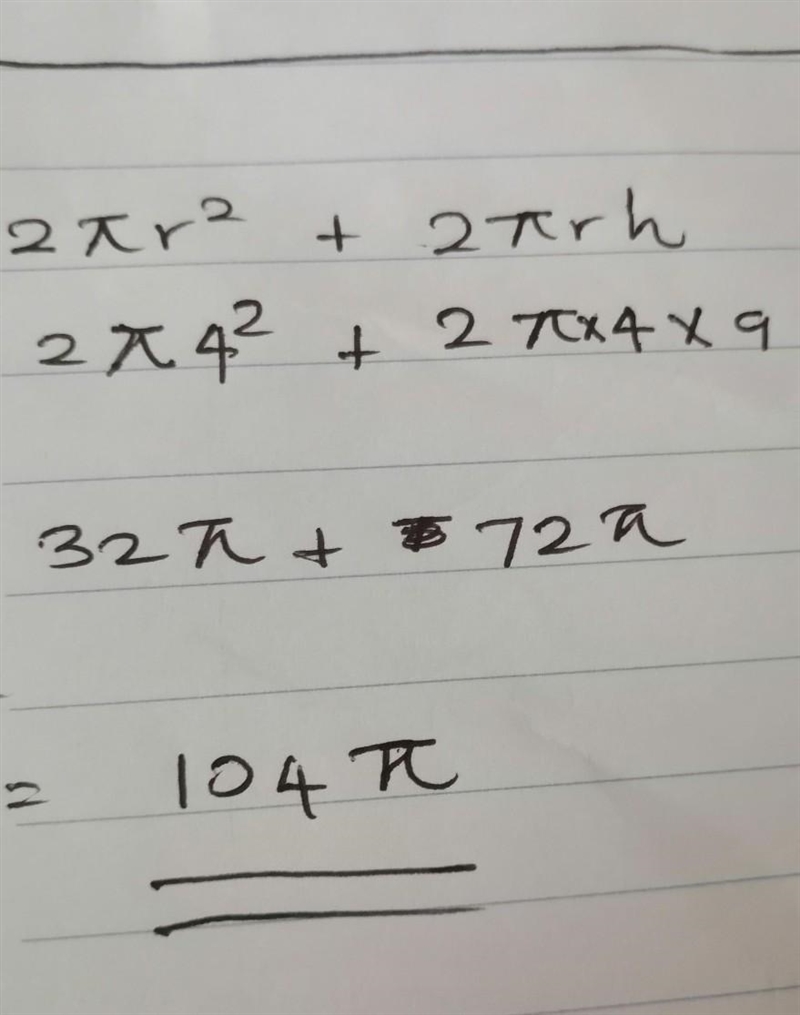 2πr² + 2πrh
2π4² + 2π×4×9
32π + 72π
= 104π